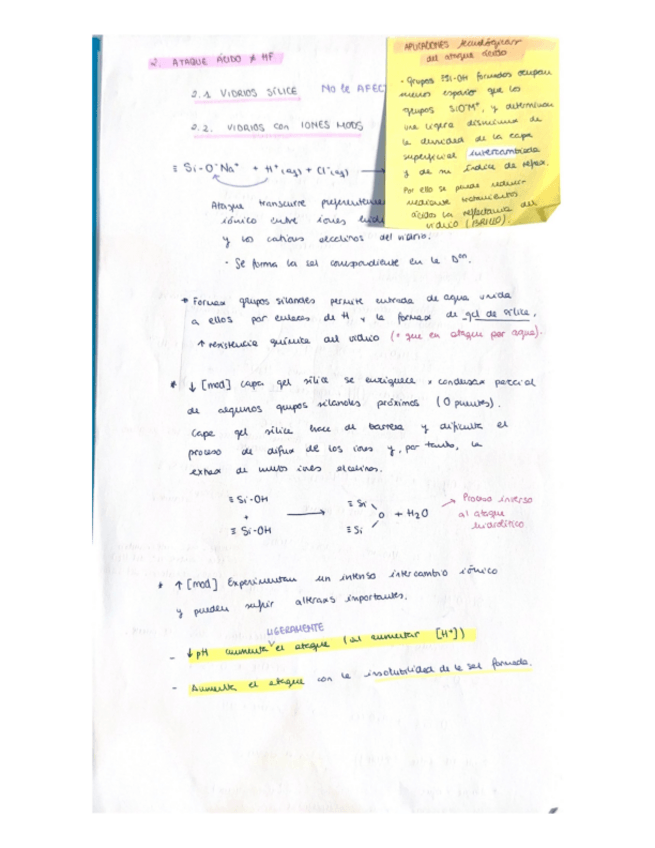 2. ATAQUE ÁCIDO ≠ HF
2.1 VIDRIOS SÍLICE No le AFEC
2.2. VIDRIOS con IONES MODS
≡ Si-O⁻Na⁺ + H⁺(aq) + Cl⁻(aq) →
Ataque transcurre preferenteme
iónico entre iones
y los cationes alcalinos del vidrio.
· Se forma la sal correspondiente en la Dᵒⁿ.
APLICACIONES tecnológicas
del ataque ácido
· Grupos ≡Si-OH formados ocupan
menos espacio que los
grupos SiO⁻M⁺, y determinan
una ligera disminuc de
la densidad de la capa
superficial intercambiada
y de su índice de refrax.
Por ello se puede reducir
mediante tratamientos
ácidos la reflectancia del
vidrio (BRILLO).
* Formax grupos silanoles permite entrada de agua unida
a ellos por enlaces de H y la formax de gel de sílice.
↑ resistencia química del vidrio (+ que en ataque por agua).
* ↓ [mod] capa gel sílice se enriquece x condensax parcial
de algunos grupos silanoles próximos (O puentes).
Capa gel sílice hace de barrera y dificulta el
proceso de difux de los iones y, por tanto, la
extrax de nuevos iones alcalinos.
≡ Si-OH
+
≡ Si-OH
→
≡ Si
O + H₂O
≡ Si
→ Proceso inverso
al ataque
hidrolítico
* ↑ [mod] Experimentan un intenso intercambio iónico
y pueden sufrir alteraxs importantes.
LIGERAMENTE
- ↓ pH aumenta el ataque (al aumentar [H⁺])
- Aumenta el ataque con la insolubilidad de la sal formada.